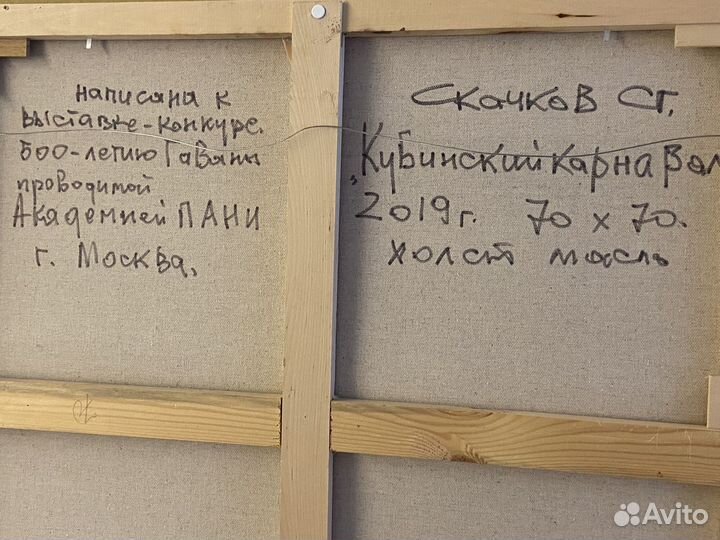 написана к
выставке-конкурс.
500-летию Гаваны
проводимой
Академией ПАНИ
г. Москва,
Скачков Ст.
„Кубинский карнавал
2019г. 70 х 70.
холст масль
70
Avito